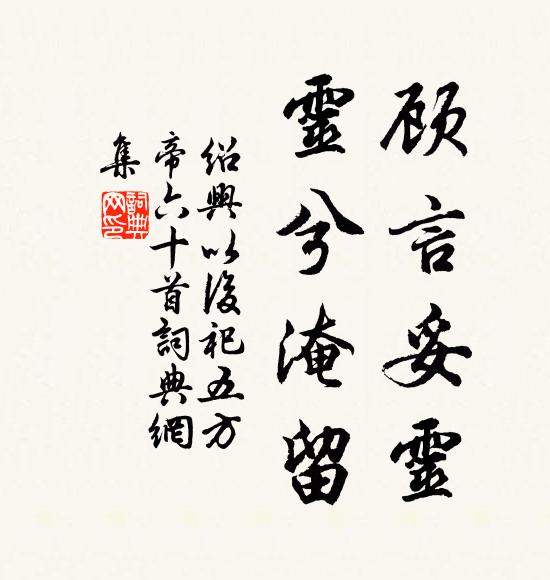 顾言妥靈
靈兮淹留
紹興以後祀五方
帝六十首詞典網
集
詞典
网印